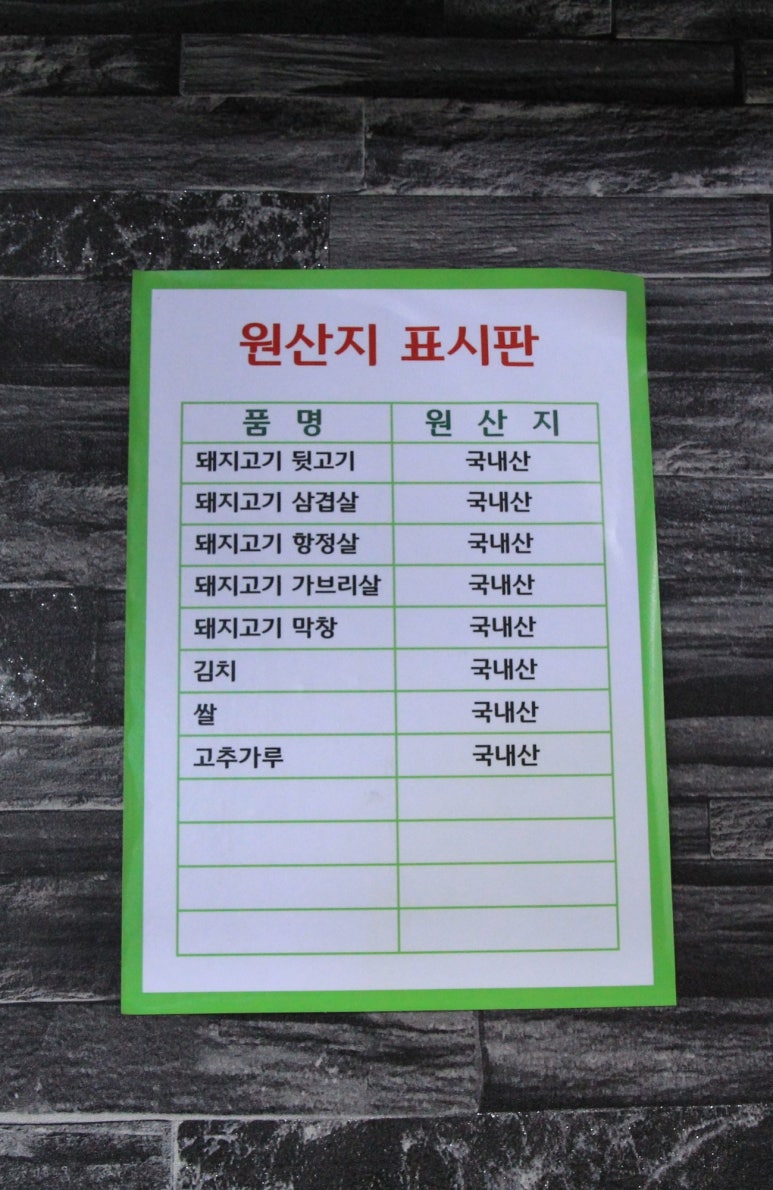 원산지 표시판
품 명 원 산 지
돼지고기 뒷고기 국내산
돼지고기 삼겹살 국내산
돼지고기 항정살 국내산
돼지고기 가브리살 국내산
돼지고기 막창 국내산
김치 국내산
쌀 국내산
고추가루 국내산